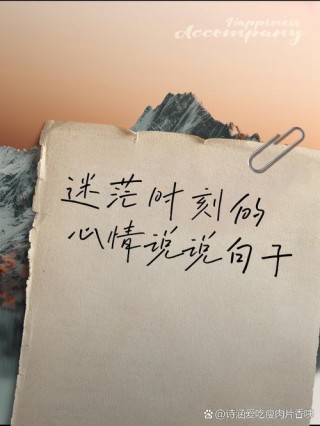 Happiness
Accompany
迷茫时刻的
心情说说句子
@诗涵爱吃瘦肉片香味